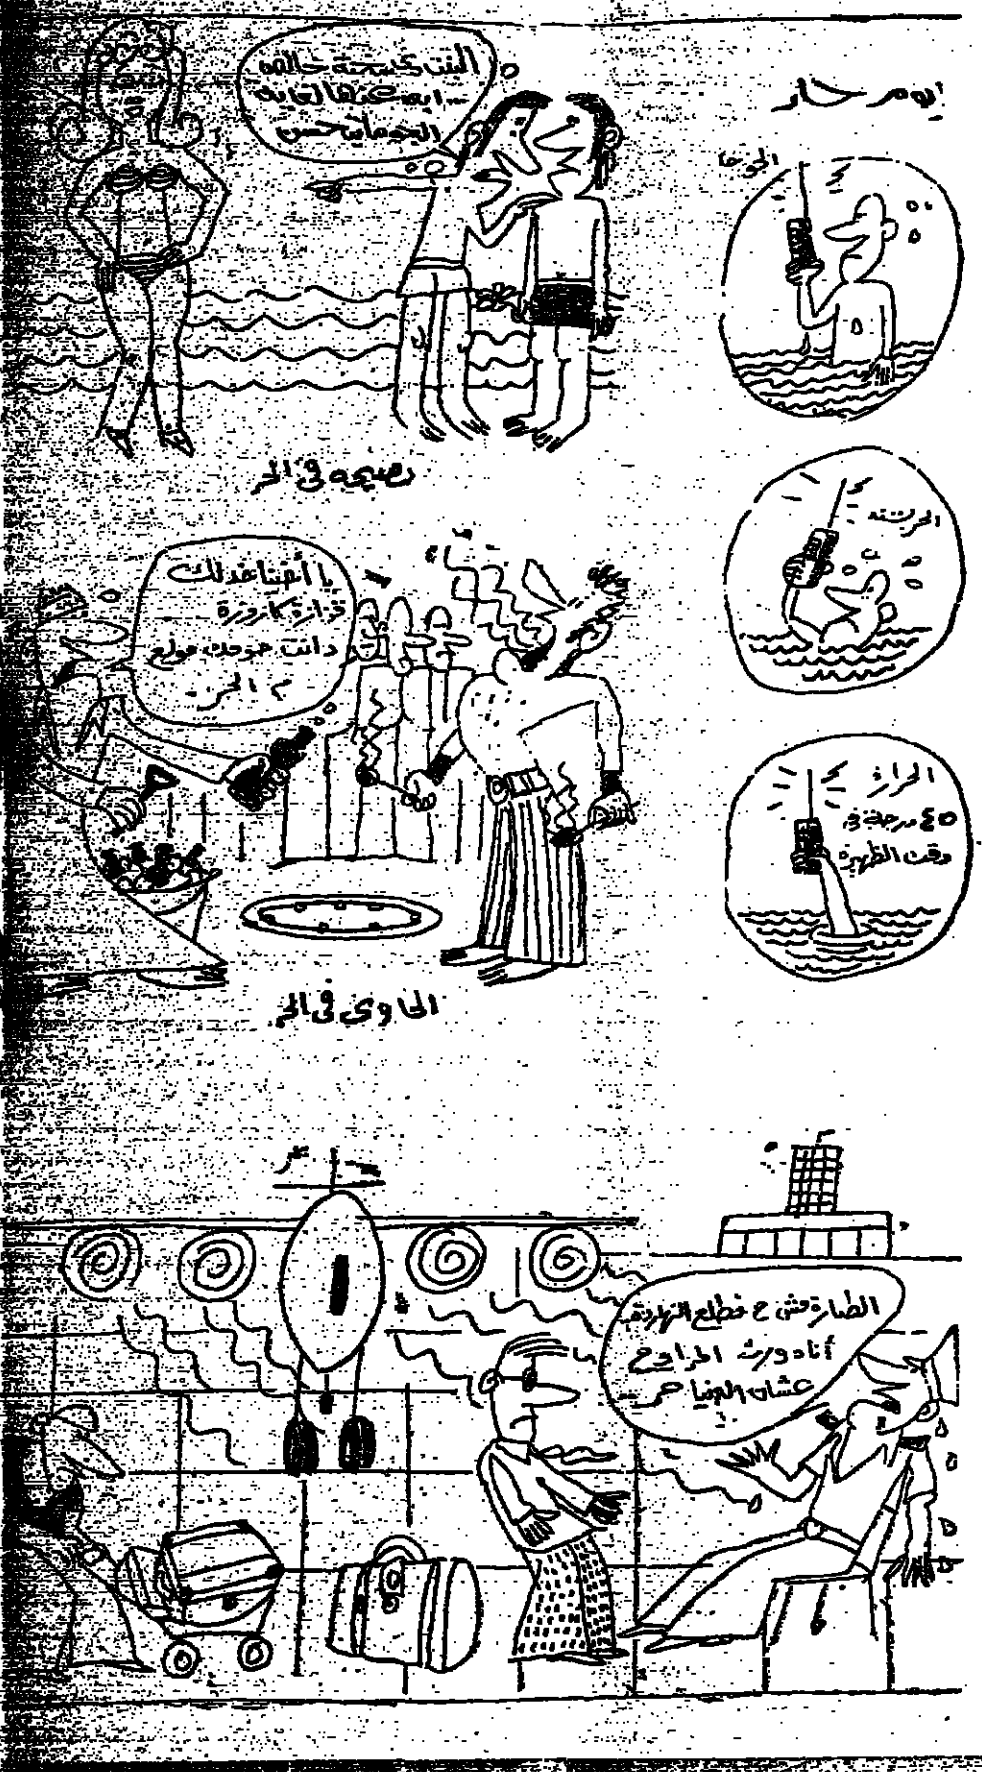 يوم حار
الجو حار
الحر شديد
الحرارة
٤٥ درجة في
وقت الظهيرة
البنت دي سخنة خالص
... ابعد عنها لغاية
الجو ما يتحسن
نصيحة في الحر
يا أخينا خدلك
قزازة كازوزة
دا انت جوفك مولع
م الحر ..
الحاوي في الحر
الطيارة مش ح تطلع النهاردة
أنا دورت المراوح
عشان الدنيا حر